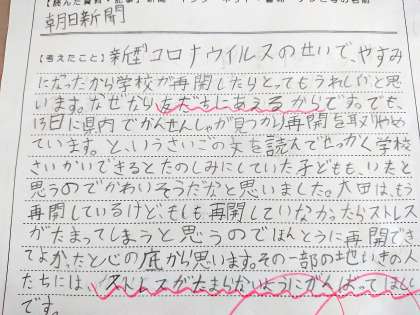 朝日新聞
【考えたこと】新型コロナウイルスのせいで、やすみ
になったから学校が再開したらとってもうれしいと思
います。なぜなら友だちにあえるからです。でも、
13日に県内でかんせんしゃが見つかり再開を取りやめ
ています。と、いうさいごの文を読んでせっかく学校
さいかいできるとたのしみにしていた子どもも、いたと
思うのでかわいそうだなと思いました。大田は、もう
再開しているけど、もしも再開していなかったらストレス
がたまってしまうと思うのでほんとうに再開でき
てよかったと心の底から思います。その一部の地いきの人
たちには、ストレスがたまらないようにがんばってほしい
です。